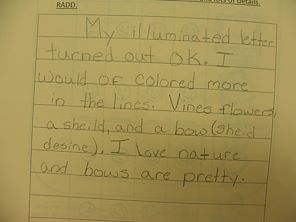 and lots of details.
RADD.
My illuminated letter
turned out OK. I
would OF colored more
in the lines. Vines flowers,
a sheild, and a bow (sheild
desine). I love nature
and bows are pretty.